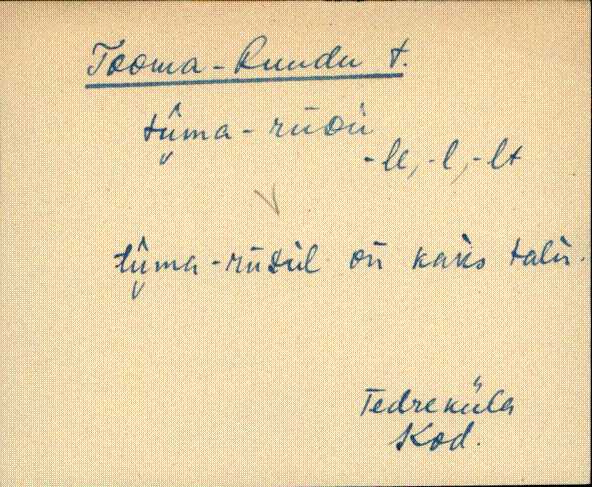 Tooma-Ruudu t.
tû̬ma-rūdù
-le, -l, -lt
tû̬ma-rūdùl on kaks talu.
Tedreküla
Kod.